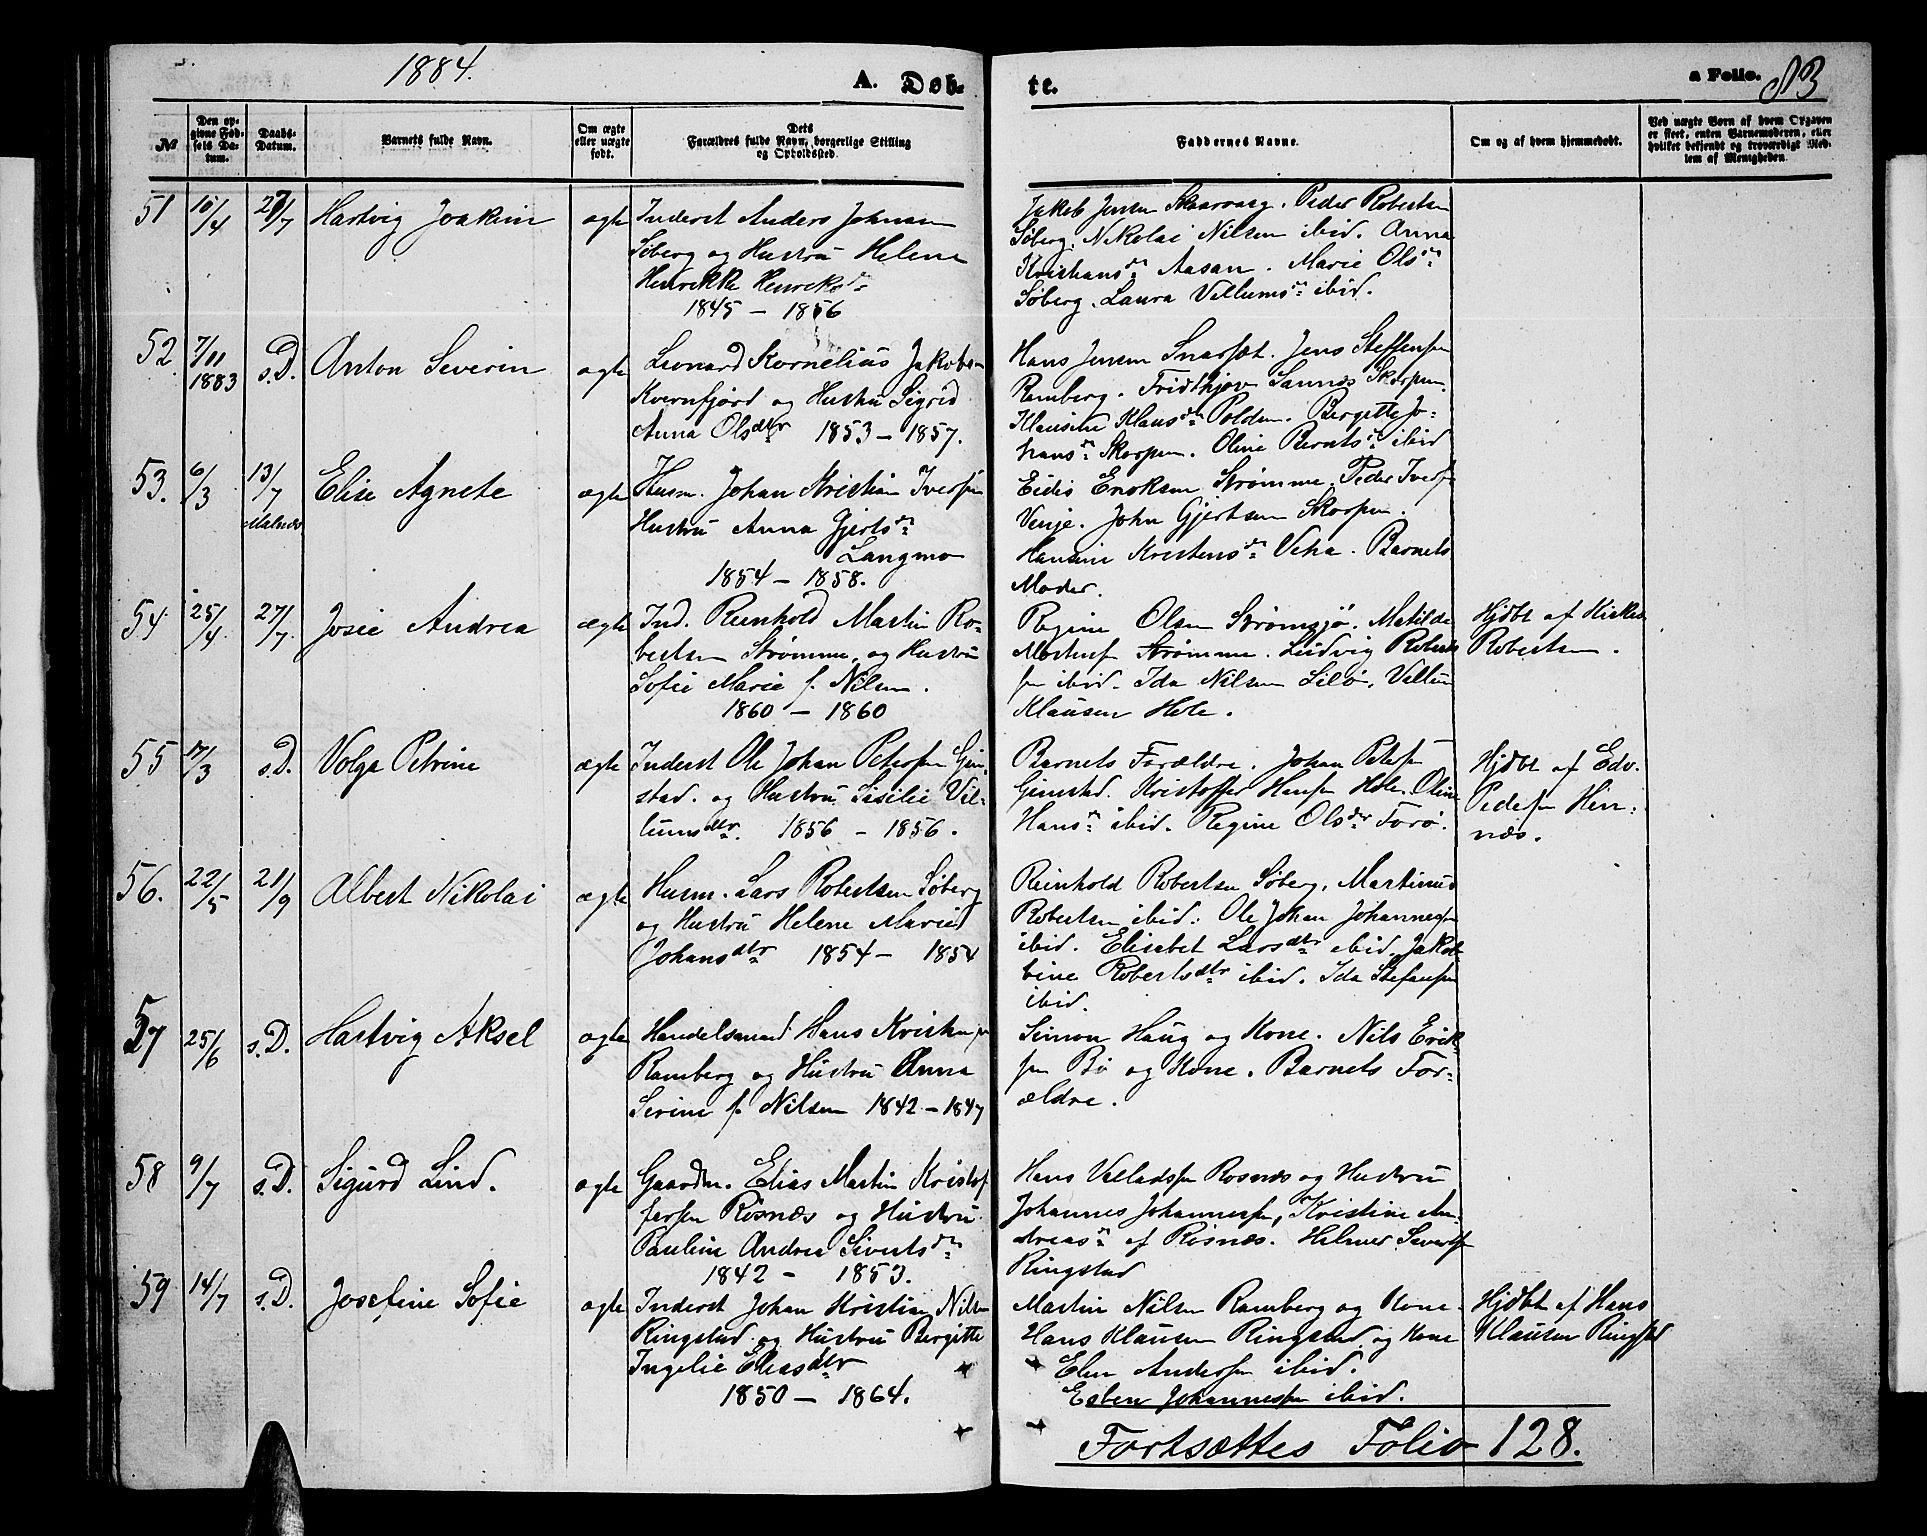 1884.
A. Døb-
te.
a Folio. 83
№
Den op-
givne Fød-
sels Da-
tum.
Daabs-
Datum.
Barnets fulde Navn.
Om ægte
eller uægte
født.
Dets
Forældres fulde Navn, borgerlige Stilling
og Opholdssted.
Faddernes Navne.
Om og af hvem hjemmedøbt.
Ved uægte Børn af hvem Opgaven
er skeet, enten Barnemoderen, eller
hvilket bekjendt og troværdigt Med-
lem af Menigheden.
51
10/4
27/7
Hartvig Joakim
ægte
Inderst Anders Johnsen
Søberg og Hustru Helene
Henrikke Henriksdr
1845 – 1856
Jakob Jensen Skaarvaag. Peder Robertsen
Søberg. Nikolai Nilsen ibid. Anna
Kristiansdr Aasan. Marie Olsdr
Søberg. Laura Villumsdr ibid.
52.
7/11
1883
s.D.
Anton Severin
ægte
Leonard Kornelius Jakobsen
Kvernfjord og Hustru Sigrid
Anna Olsdtr 1853 – 1857.
Hans Jensen Snarset. Jens Steffensen
Ramberg. Fridthjov Sannes Skorpen.
Klausine Klausdtr Polden. Bergitte Jo-
hansdr Skorpen. Oline Berntsdr ibid
53.
6/3
13/7
Malnes
Elise Agnete
ægte
Husm. Johan Kristian Iversen
Hustru Anna Gjertsdr
Langmo
1854 – 1858.
Eidis Eriksen Strømme. Peder Iversen
Vinje. John Gjertsen Skorpen.
Hansine Kristensdr Vika. Barnets
Moder.
54.
25/4.
27/7.
Josie Andrea
ægte
Ind. Reinhold Martin Ro-
bertsen Strømme, og Hustru
Sofie Marie f. Nilsen.
1860 – 1860
Regine Olsen Strømsjø. Matilde
Mortensen Strømme. Ludvig Roberts
sen ibid. Ida Nilsen Lilø. Villum
Klausen Hole.
Hjdbt af Kirkes.
Robertsen.
55
17/3
s.D.
Volga Petrine
ægte
Inderst Ole Johan Petersen Gim-
stad. og Hustru Sisilie Vil-
lumsdtr. 1856 – 1856.
Barnets Forældre. Johan Petersen
Gimstad. Kristoffer Hansen Hole. Oline
Hansdr ibid. Regine Olsdtr Forø.
Hjdbt af Edv.
Pedersen Hin-
næs.
56.
22/5
21/9
Albert Nikolai
ægte
Husm. Lars Robertsen Søberg
og Hustru Helene Marie
Johansdtr 1854 – 1854
Reinhold Robertsen Søberg. Martinus
Robertsen ibid. Ole Johan Johannesen
ibid. Elisabet Larsdtr ibid. Jako-
bine Robertsdtr ibid. Ida Stefansen
ibid.
57
25/6
s.D.
Hartvig Aksel
ægte
Handelsmand Hans Kristensen
Ramberg og Hustru Anna
Serine f. Nilsen 1842 – 1847
Simon Haug og Kone. Nils Erik-
sen Bø og Kone. Barnets For-
ældre.
58
9/7
s.D.
Sigurd Lind.
ægte
Gaardm. Elias Martin Kristof
fersen Risnæs og Hustru
Pauline Andrea Sivertsdr
1842 – 1853.
Hans Villadsen Rosnæs og Hustru
Johannes Johannessen, Kristine An-
dreasdr af Risnæs. Helmer Sivertsen
Ringstad
59
14/7
s.D.
Josefine Sofie
ægte
Inderst Johan Kristian Nilsen
Ringstad og Hustru Bergitte
Ingelie Eliasdtr
1850 – 1864.
Martin Nilsen Ramberg og Kone.
Hans Klausen Ringstad og Kone
Elen Andersen ibid.
Esben Johannessen ibid.
Hjdbt af Hans
Klausen Ringstad
Fortsættes Folio 128.